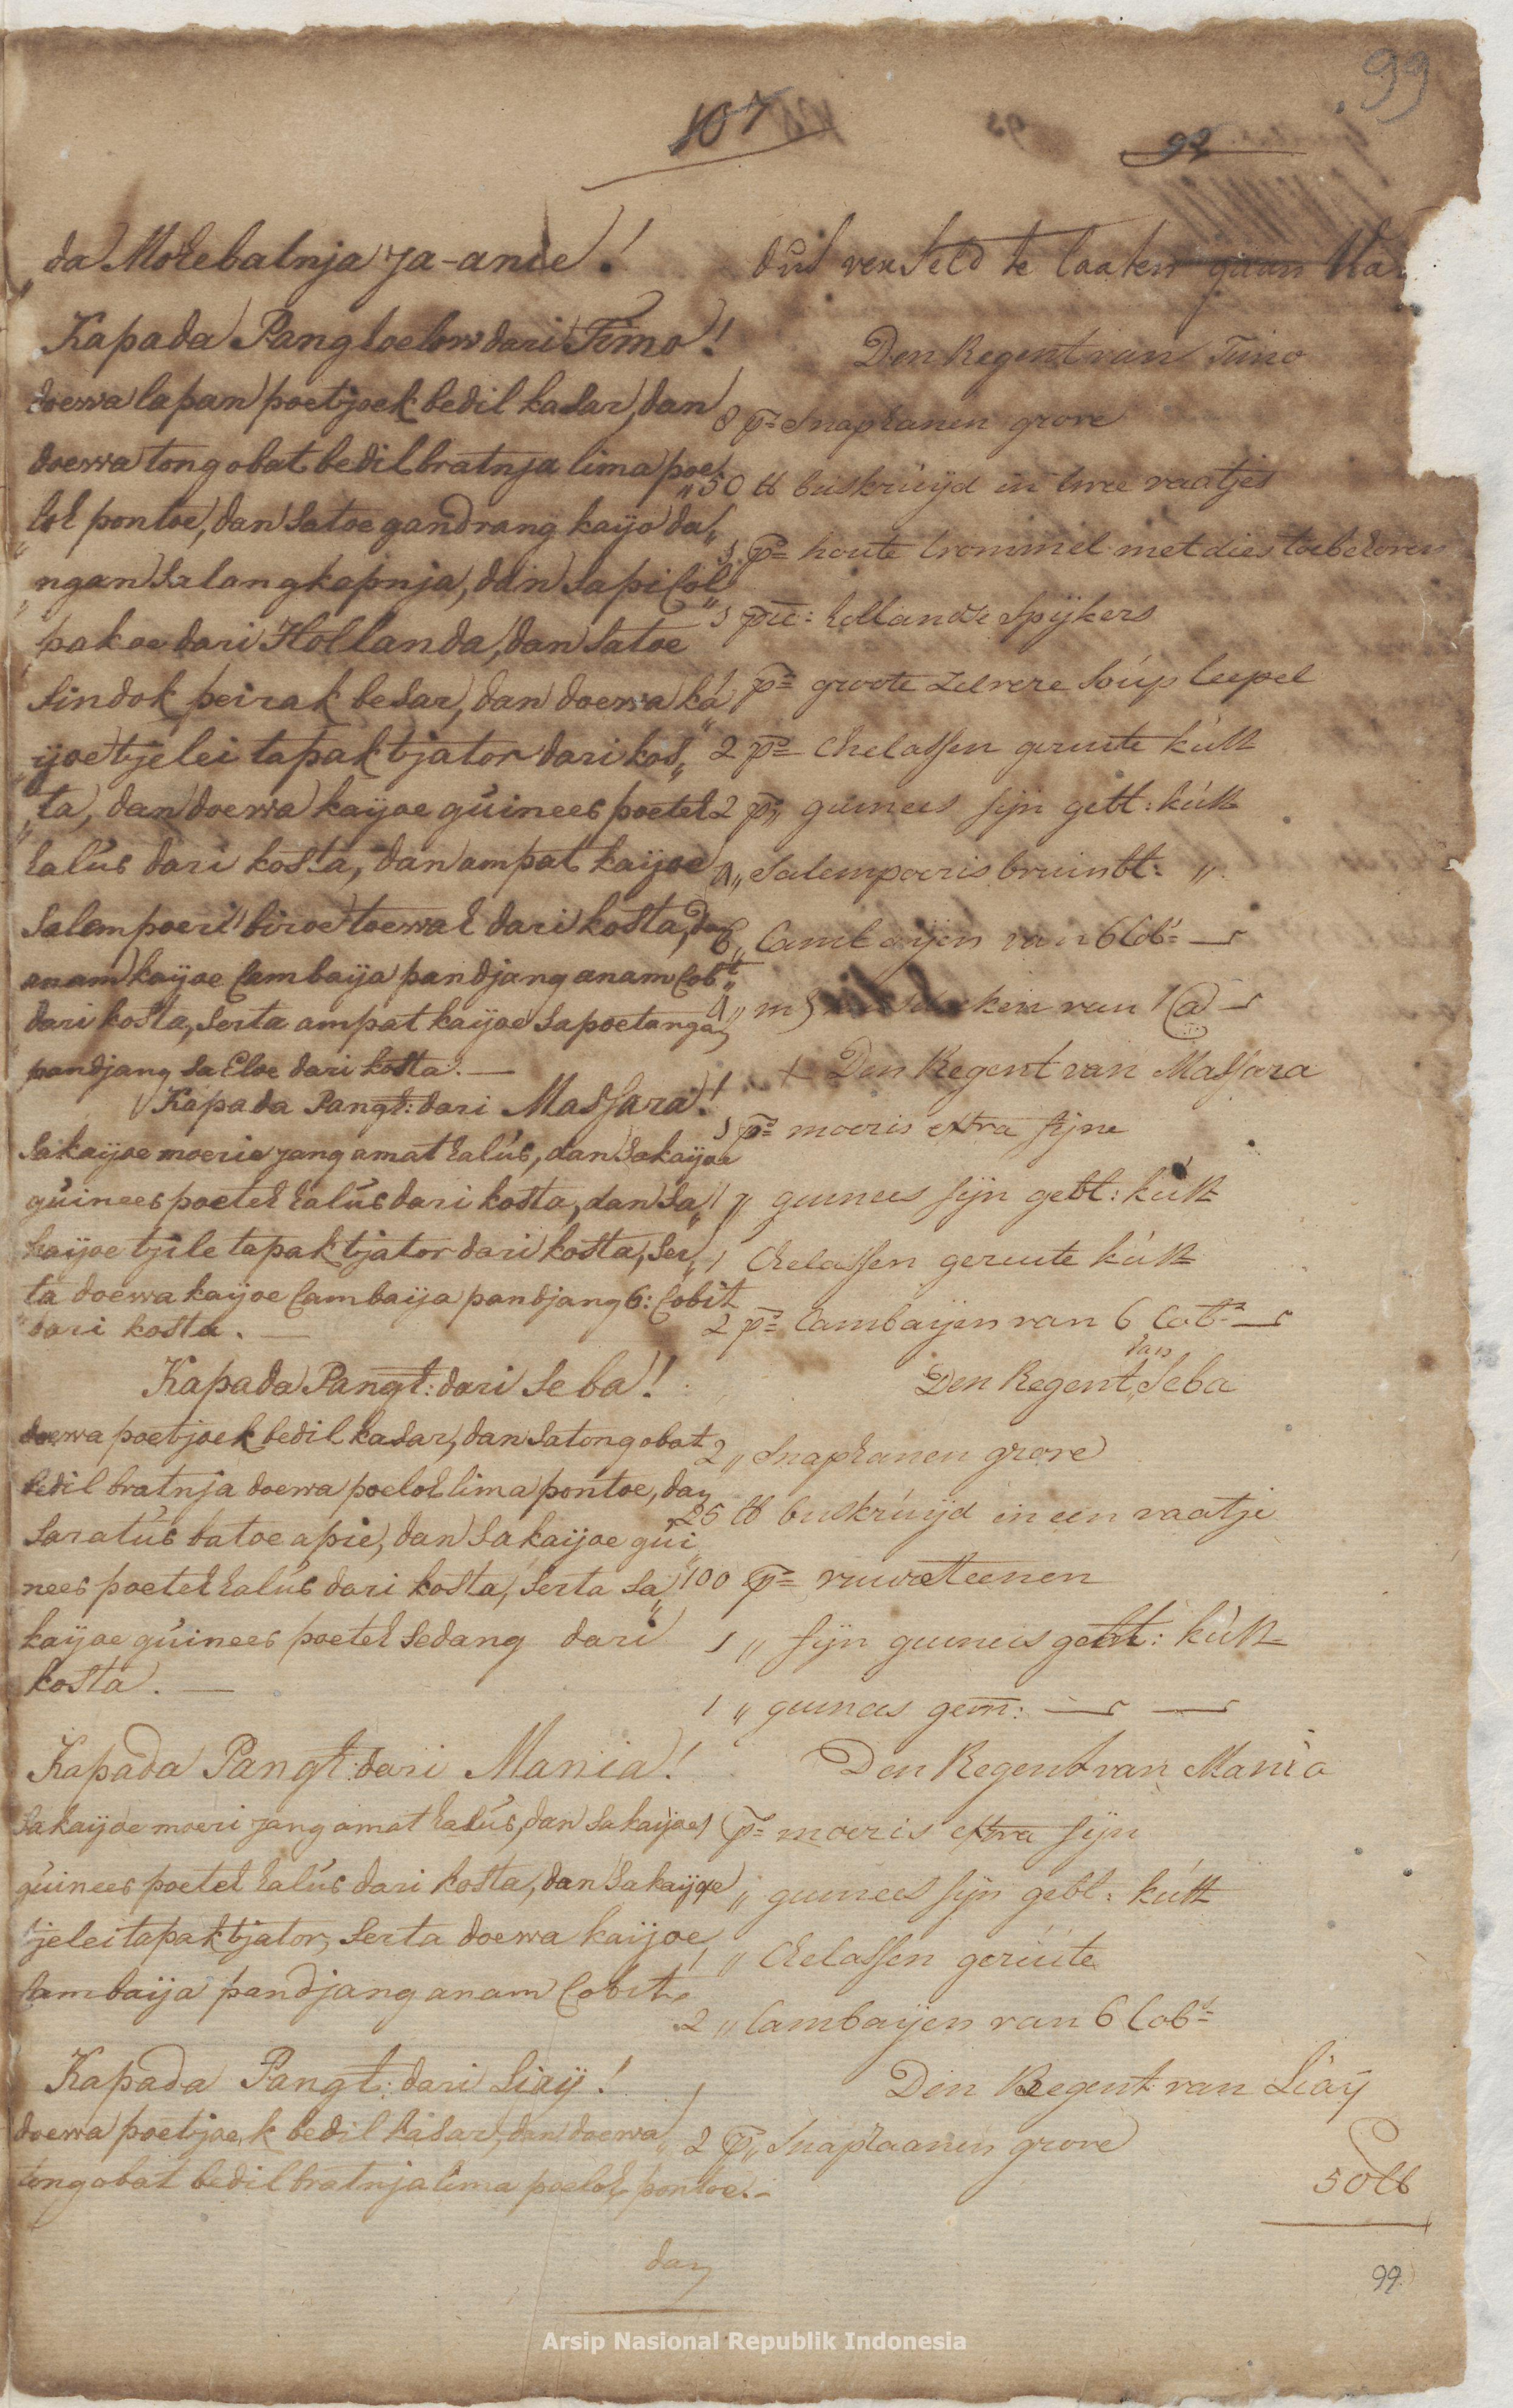 99
107
92
da Mohebatnja ja-anie!
Kapada Pangloelow dari Timo!
doewa lapan poetjoek bedil kasar, dan
doewa tong obat bedil bratnja lima poe„
„loh pontoe, dan satoe gandrang kaijo da„
„ngan salangkapnja, dan sa picol
pakoe dari Hollanda, dan satoe
sindok peirak besar, dan doewa ka„
„ijoe tjelei tapak tjator dari kos„
„ta, dan doewa kaijoe guinees poeteh
halus dari kosta, dan ampat kaijoe
salempoeri biroe toewah dari kosta, dan
anam kaijoe Cambaija pandjang anam Cob:t
dari kosta, serta ampat kaijoe sapoetangan
pandjang sa Eloe dari kosta. —
Kapada Pangl: dari Massara!
sakaijoe moerie jang amat halus, dan sakaijoe
guinees poeteh halus dari kosta, dan sa„
kaijoe tjile tapak tjator dari kosta, ser„
„ta doewa kaijoe Cambaija pandjang 6: Cobit
dari kosta. —
Kapada Pangl: dari Seba!
doewa poetjoek bedil kasar, dan satong obat
bedil bratnja doewa poeloh lima pontoe, dan
saratus batoe apie, dan sakaijoe gui„
nees poeteh halus dari kosta, serta sa„
kaijoe guinees poeteh sedang dari
kosta. —
Kapada Pangl: dari Mania!
sakaijoe moeri jang amat halus, dan sakaijoe
guinees poeteh halus dari kosta, dan sakaijoe
tjelei tapak tjator, serta doewa kaijoe
Cambaija pandjang anam Cobit.
Kapada Pangl: dari Liaij!
doewa poetjoek bedil kasar, dan doewa
tong obat bedil bratnja lima poeloh pontoe. —
dan
dus verseld te laaten gaan
Den Regent van Timo
8 p:s Snaphanen grove
50 lb buskruijd in twee vaatjes
1 p:s houte trommel met dies toebehoren
1 pic: hollandse Spijkers
1 p:s groote Zelvere Soup leepel
2 p:s Chelassen geruite kust
2 p:s guinees fijn gebl: kust
4 „ Salempoeris bruinbl: „
6 „ Cambaijen van 6 Cob:s —
4 „ van 1 @ —
Den Regent van Massara
1 p:s moeris extra fijne
1 „ guinees fijn gebl: kust
1 Chelassen geruite kust
2 p:s Cambaijen van 6 Cob:s —
Den Regent van Seba
2 „ Snaphanen grove
25 lb buskruijd in een vaatje
100 p:s vuursteenen
1 „ fijn guinees gebl: kust
1 „ guinees gem: — —
Den Regent van Mania
1 p:s moeris extra fijn
1 „ guinees fijn gebl: kust
1 „ Chelassen geruite
2 „ Cambaijen van 6 Cob:s
Den Regent van Liaij
2 p:s Snaphaanen grove
50 lb
99
Arsip Nasional Republik Indonesia